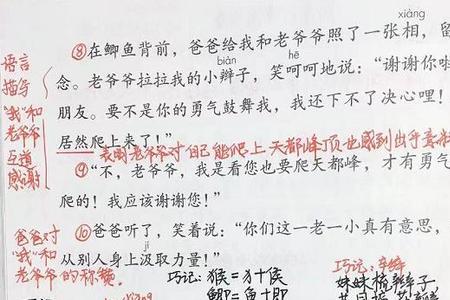 xiàng
⑧在鲫鱼背前，爸爸给我和老爷爷照了一张相，留
语言
描写
"我"和
老爷爷
互道
感谢
biàn hē
念。老爷爷拉拉我的小辫子，笑呵呵地说：“谢谢你啦
朋友。要不是你的勇气鼓舞我，我还下不了决心哩！
居然爬上来了！”
表明老爷爷对自己能爬上天都峰顶也感到出乎意料
⑨“不，老爷爷，我是看您也要爬天都峰，才有勇气
爬的！我应该谢谢您！”
⑩爸爸听了，笑着说：“你们这一老一小真有意思，
爸爸对
"我"和
老爷爷的称赞。
jí
从别人身上汲取力量！”
巧记：猴=犭+侯
鲫=鱼+即
巧记：辛辫
妹妹梳辫子